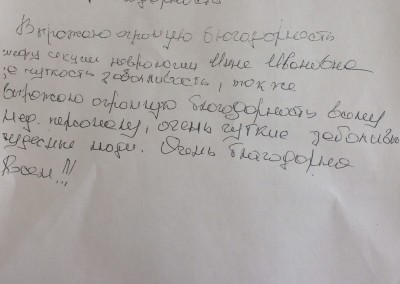 Выражаю огромную благодарность
шефу секции неврологии Инне Ивановне
за чуткость заботливость, также
Выражаю огромную благодарность всему
мед. персоналу, очень чуткие заботливы
чудесные люди. Очень благодарна
Всем!!!